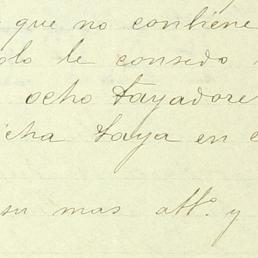 que no contiene
olo le consedo
ocho tayadore
icha taya en e
su mas att.º y